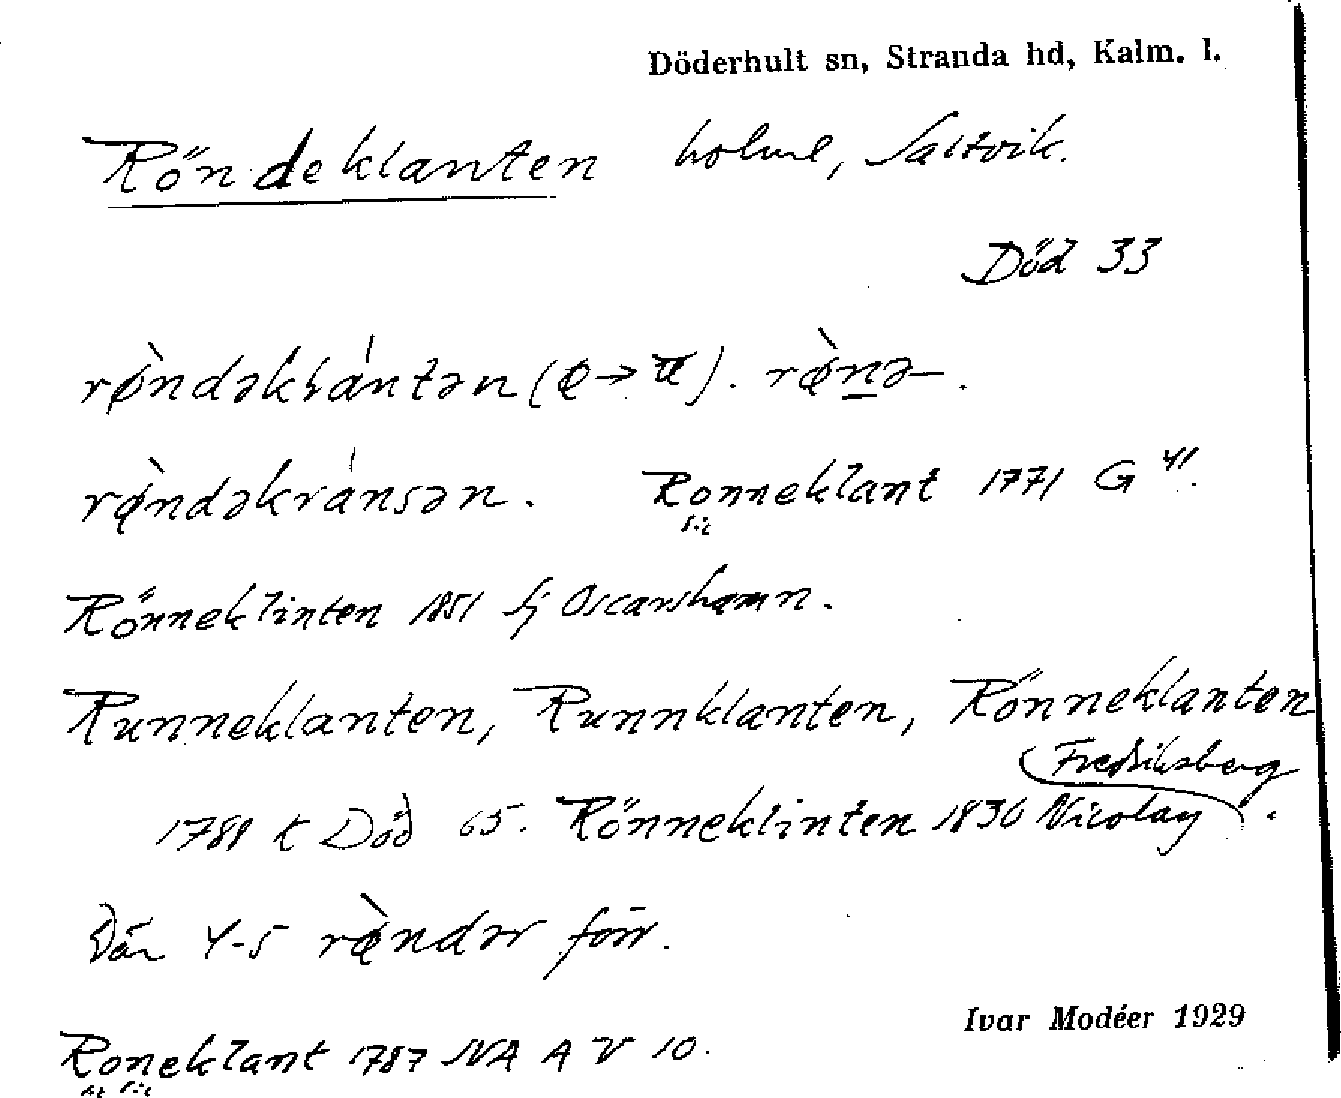 Döderhult sn, Stranda hd, Kalm. l.
Röndeklanten holme, Saltvik.
Död 33
Ronneklant 1771 G 41.
Rönneklinten 1851 Sj Oscarshamn.
Runneklanten, Runnklanten, Rönneklanten
Fredriksberg
1781 k Död 65. Rönneklinten 1836 Nicolay.
Där 4-5 rø̀ndər förr.
Ivar Modéer 1929
Roneklant 1787 NA A V 10.